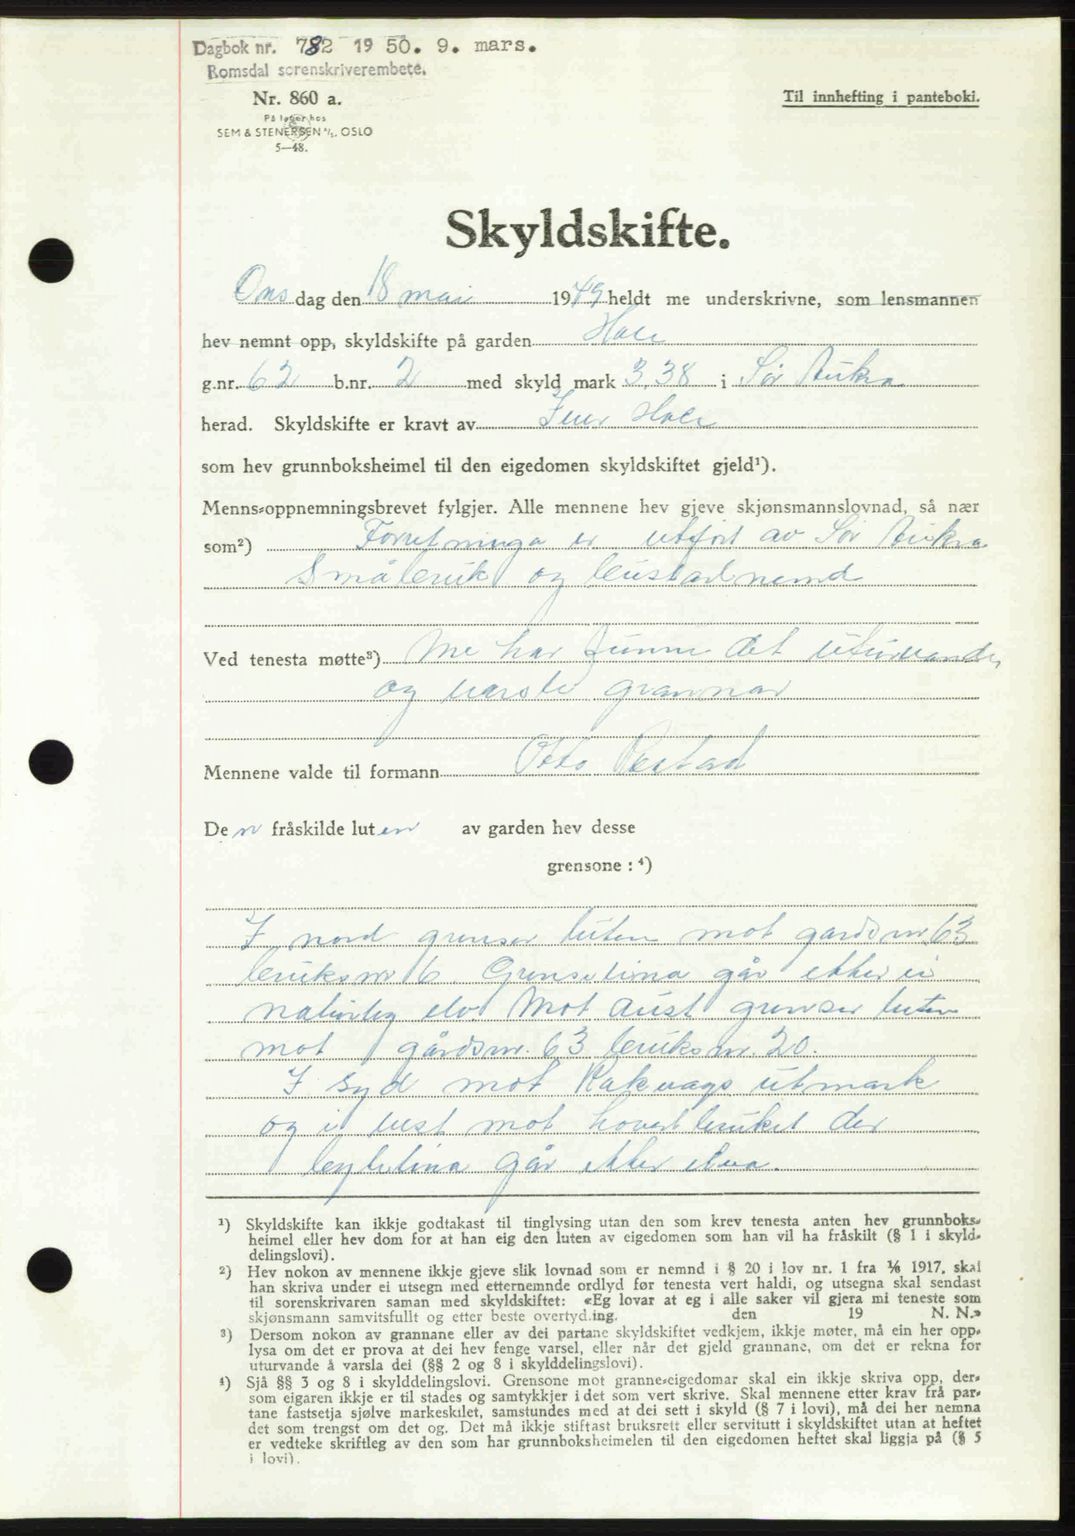 Dagbok nr. 782 1950. 9. mars.
Romsdal sorenskriverembete.
Nr. 860 a.
Til innhefting i panteboki.
På lager hos
SEM & STENERSEN A/S. OSLO
5—48.
Skyldskifte.
Ons dag den 18 mai 1949 heldt me underskrivne, som lensmannen
hev nemnt opp, skyldskifte på garden Hole
g.nr. 62 b.nr. 2 med skyld mark 3,38 i Sør Aukra
herad. Skyldskifte er kravt av Iver Hole
som hev grunnboksheimel til den eigedomen skyldskiftet gjeld¹).
Menns-oppnemningsbrevet fylgjer. Alle mennene hev gjeve skjønsmannslovnad, så nær
som²) Forretninga er utført av Sør Aukra
Småbruk og bustadnemd
Ved tenesta møtte³) Me har funne det uturvande
og varsle grannar
Mennene valde til formann Otto
Den fråskilde luten av garden hev desse
grensone : ⁴)
I nord grenser luten mot gardsnr. 63
bruksnr 6. Grenselina går etter ei
naturleg elv. Mot aust grenser luten
mot gårdsnr. 63 bruksnr. 20.
I syd mot Rakvågs utmark
og i vest mot hovedbruket der
bytelina går etter elva.
¹) Skyldskifte kan ikkje godtakast til tinglysing utan den som krev tenesta anten hev grunnboks-
heimel eller hev dom for at han eig den luten av eigedomen som han vil ha fråskilt (§ 1 i skyld-
delingslovi).
²) Hev nokon av mennene ikkje gjeve slik lovnad som er nemnd i § 20 i lov nr. 1 fra 1/6 1917, skal
han skriva under ei utsegn med etternemnde ordlyd før tenesta vert haldi, og utsegna skal sendast
til sorenskrivaren saman med skyldskiftet: «Eg lovar at eg i alle saker vil gjera mi teneste som
skjønsmann samvitsfullt og etter beste overtyding. den 19 N. N.»
³) Dersom nokon av grannane eller av dei partane skyldskiftet vedkjem, ikkje møter, må ein her opp-
lysa om det er prova at dei hev fenge varsel, eller når det gjeld grannane, om det er rekna for
uturvande å varsla dei (§§ 2 og 8 i skylddelingslovi).
⁴) Sjå §§ 3 og 8 i skylddelingslovi. Grensone mot granne-eigedomar skal ein ikkje skriva opp, der-
som eigaren ikkje er til stades og samtykkjer i det som vert skrive. Skal mennene etter krav frå par-
tane fastsetja sjølve markeskilet, samstundes med at dei sett i skyld (§ 7 i lovi), må dei her nemna
det som trengst om det og. Det må ikkje stiftast bruksrett eller servitutt i skyldskiftet utan at heftet
er vedteke skriftleg av den som har grunnboksheimelen til den eigedomen heftet skal liggja på (§ 5
i lovi).